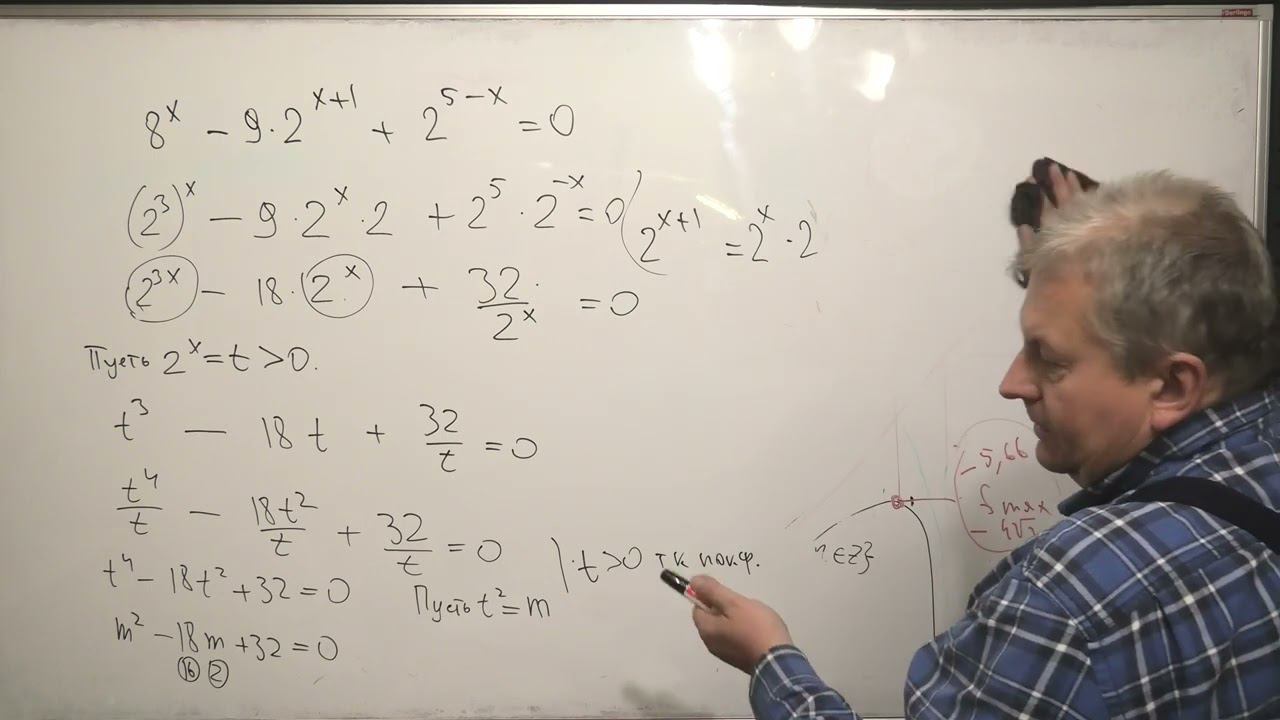 8^x - 9·2^{x+1} + 2^{5-x} = 0
(2^3)^x - 9·2^x·2 + 2^5·2^{-x} = 0
2^{x+1} = 2^x·2
2^{3x} - 18·2^x + 32/2^x = 0
Пусть 2^x = t > 0.
t^3 - 18t + 32/t = 0
t^4/t - 18t^2/t + 32/t = 0
|·t>0 т.к показ.
t^4 - 18t^2 + 32 = 0
Пусть t^2 = m
m^2 - 18m + 32 = 0
16 2
-5,66
f max
n ∈ Z}